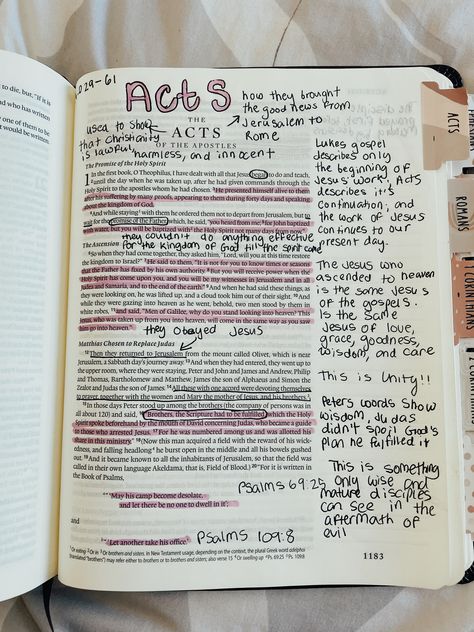 to die, but, "If it is
who has written
one of them to be
would be written.
29-61
Acts
how they brought
the good news from
Jerusalem to
Rome
used to show
that Christianity
is lawful, harmless, and innocent
THE
ACTS
OF THE APOSTLES
The Promise of the Holy Spirit
1 In the first book, O Theophilus, I have dealt with all that Jesus began to do and teach,
until the day when he was taken up, after he had given commands through the Holy
Spirit to the apostles whom he had chosen. ³He presented himself alive to them
after his suffering by many proofs, appearing to them during forty days and speaking
about the kingdom of God.
⁴And while staying with them he ordered them not to depart from Jerusalem, but to
wait for the promise of the Father, which, he said, "you heard from me; ⁵for John baptized
with water, but you will be baptized with the Holy Spirit not many days from now."
they couldn't do anything effective
for the kingdom of God til' the spirit come
The Ascension
⁶So when they had come together, they asked him, "Lord, will you at this time restore
the kingdom to Israel?" ⁷He said to them, "It is not for you to know times or seasons
that the Father has fixed by his own authority. ⁸But you will receive power when the
Holy Spirit has come upon you, and you will be my witnesses in Jerusalem and in all
Judea and Samaria, and to the end of the earth." ⁹And when he had said these things, as
they were looking on, he was lifted up, and a cloud took him out of their sight. ¹⁰And
while they were gazing into heaven as he went, behold, two men stood by them in
white robes, ¹¹and said, "Men of Galilee, why do you stand looking into heaven? This
Jesus, who was taken up from you into heaven, will come in the same way as you saw
him go into heaven."
they obeyed Jesus
Matthias Chosen to Replace Judas
¹²Then they returned to Jerusalem from the mount called Olivet, which is near
Jerusalem, a Sabbath day's journey away. ¹³And when they had entered, they went up to
the upper room, where they were staying, Peter and John and James and Andrew, Philip
and Thomas, Bartholomew and Matthew, James the son of Alphaeus and Simon the
Zealot and Judas the son of James. ¹⁴All these with one accord were devoting themselves
to prayer, together with the women and Mary the mother of Jesus, and his brothers.
¹⁵In those days Peter stood up among the brothers (the company of persons was in
all about 120) and said, ¹⁶"Brothers, the Scripture had to be fulfilled, which the Holy
Spirit spoke beforehand by the mouth of David concerning Judas, who became a guide
to those who arrested Jesus. ¹⁷For he was numbered among us and was allotted his
share in this ministry." ¹⁸(Now this man acquired a field with the reward of his wick-
edness, and falling headlong he burst open in the middle and all his bowels gushed
out. ¹⁹And it became known to all the inhabitants of Jerusalem, so that the field was
called in their own language Akeldama, that is, Field of Blood.) ²⁰"For it is written in
the Book of Psalms,
"'May his camp become desolate,
and let there be no one to dwell in it';
Psalms 69:25
and
"'Let another take his office.'
Psalms 109:8
1183
Lukes gospel
describes only
the beginning of
Jesus' work; Acts
describes it's
continuation; and
the work of Jesus
continues to our
present day.
The Jesus who
ascended to heaven
is the same Jesus
of the gospels.
Is the same
Jesus of love,
grace, goodness,
wisdom, and care
This is Unity!!
Peters words show
wisdom, Judas
didn't spoil God's
plan he fulfilled it
This is something
only wise and
mature disciples
can see in the
aftermath of
evil
ROMANS